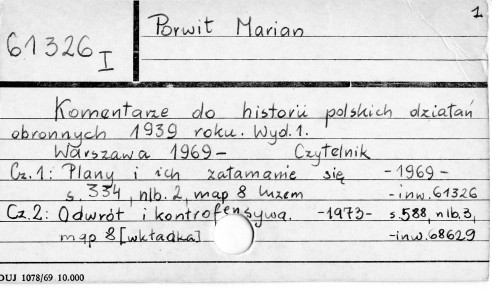 1
Porwit Marian
61326 I
Komentarze do historii polskich działań
obronnych 1939 roku. Wyd. 1.
Warszawa 1969 – Czytelnik
Cz. 1: Plany i ich załamanie się – 1969 –
s. 334, nlb. 2, map 8 luzem – inw. 61326
Cz. 2: Odwrót i kontrofensywa. – 1973 – s. 588, nlb. 3,
map 8 [wkładka] – inw. 68629
DUJ 1078/69 10.000